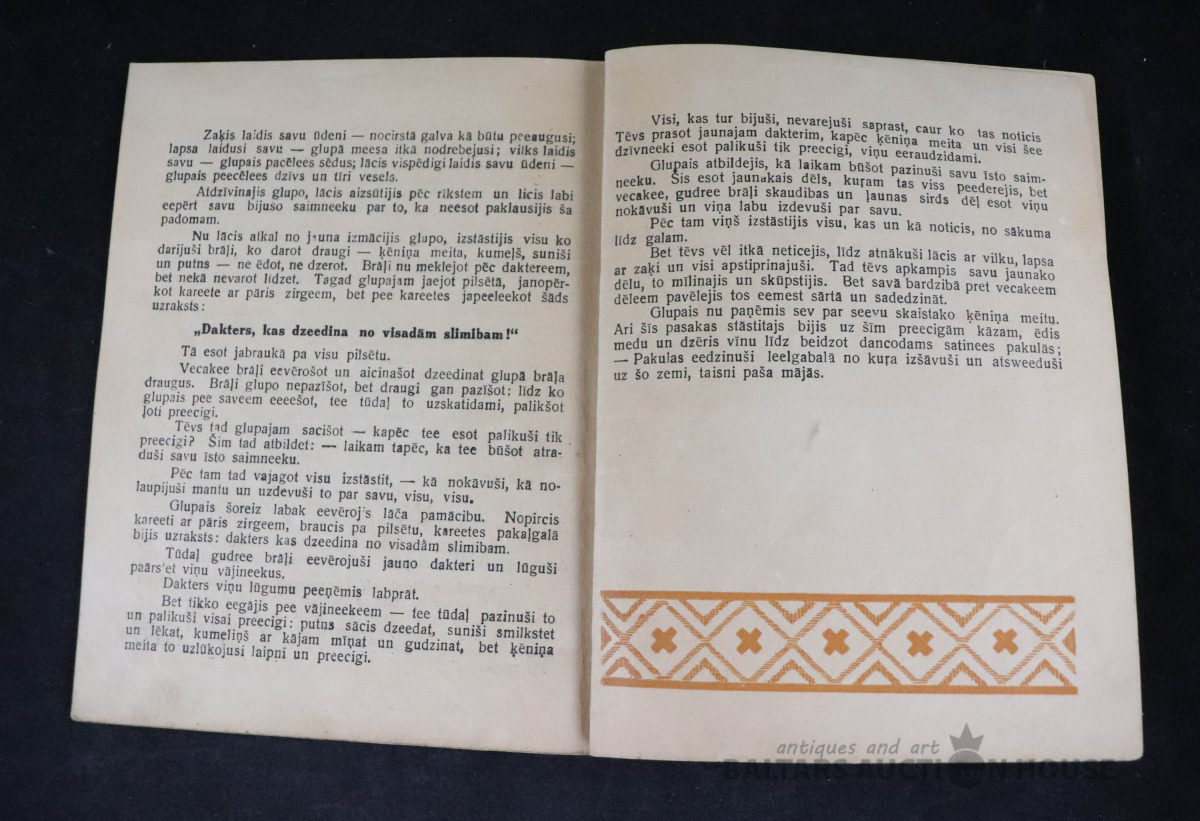 Zaķis laidis savu ūdeni — nocirstā galva kā būtu peeaugusi;
lapsa laidusi savu — glupā meesa itkā nodrebejusi; vilks laidis
savu — glupais pacēlees sēdus; lācis vispēdigi laidis savu ūdeni —
glupais peecēlees dzīvs un tīri vesels.
Atdzīvinajis glupo, lācis aizsūtijis pēc rīkstem un licis labi
eepērt savu bijušo saimneeku par to, ka neesot paklausijis ša
padomam.
Nu lācis atkal no jauna izmācijis glupo, izstāstijis visu ko
darijuši brāļi, ko darot draugi — ķēniņa meita, kumeļš, suniši
un putns — ne ēdot, ne dzerot. Brāļi nu meklejot pēc daktereem,
bet nekā nevarot līdzet. Tagad glupajam jaejot pilsētā, janopēr-
kot kareete ar pāris zirgeem, bet pee kareetes japeeleekot šāds
uzraksts:
„Dakters, kas dzeedina no visadām slimibam!“
Tā esot jabraukā pa visu pilsētu.
Vecakee brāļi eevērošot un aicinašot dzeedinat glupā brāļa
draugus. Brāļi glupo nepazīšot, bet draugi gan pazīšot: līdz ko
glupais pee saveem eeeešot, tee tūdaļ to uzskatidami, palikšot
ļoti preecigi.
Tēvs tad glupajam sacišot — kapēc tee esot palikuši tik
preecigi? Šim tad atbildet: — laikam tapēc, ka tee būšot atra-
duši savu īsto saimneeku.
Pēc tam tad vajagot visu izstāstit, — kā nokāvuši, kā no-
laupijuši mantu un uzdevuši to par savu, visu, visu.
Glupais šoreiz labak eevēroj's lāča pamācibu. Nopircis
kareeti ar pāris zirgeem, braucis pa pilsētu, kareetes pakaļgalā
bijis uzraksts: dakters kas dzeedina no visadām slimibam.
Tūdaļ gudree brāļi eevērojuši jauno dakteri un lūguši
paārs'et viņu vājineekus.
Dakters viņu lūgumu peeņēmis labprāt.
Bet tikko eegājis pee vājineekeem — tee tūdaļ pazinuši to
un palikuši visai preecigi: putns sācis dzeedat, suniši smilkstet
un lēkat, kumeliņš ar kājam mīņat un gudzinat, bet ķēniņa
meita to uzlūkojusi laipni un preecigi.
Visi, kas tur bijuši, nevarejuši saprast, caur ko tas noticis
Tēvs prasot jaunajam dakterim, kapēc ķēniņa meita un visi šee
dzīvneeki esot palikuši tik preecigi, viņu eeraudzidami.
Glupais atbildejis, kā laikam būšot pazinuši savu īsto saim-
neeku. Šis esot jaunakais dēls, kuŗam tas viss peederejis, bet
vecakee, gudree brāļi skaudibas un ļaunas sirds dēļ esot viņu
nokāvuši un viņa labu izdevuši par savu.
Pēc tam viņš izstāstijis visu, kas un kā noticis, no sākuma
līdz galam.
Bet tēvs vēl itkā neticejis, līdz atnākuši lācis ar vilku, lapsa
ar zaķi un visi apstiprinajuši. Tad tēvs apkampis savu jaunako
dēlu, to mīlinajis un skūpstijis. Bet savā bardzibā pret vecakeem
dēleem pavēlejis tos eemest sārtā un sadedzināt.
Glupais nu paņēmis sev par seevu skaistako ķēniņa meitu.
Ari šīs pasakas stāstitajs bijis uz šīm preecigām kāzam, ēdis
medu un dzēris vīnu līdz beidzot dancodams satinees pakulās;
— Pakulas eedzinuši leelgabalā no kuŗa izšāvuši un atsweeduši
uz šo zemi, taisni paša mājās.
antiques and art
BALTARS AUCTION HOUSE